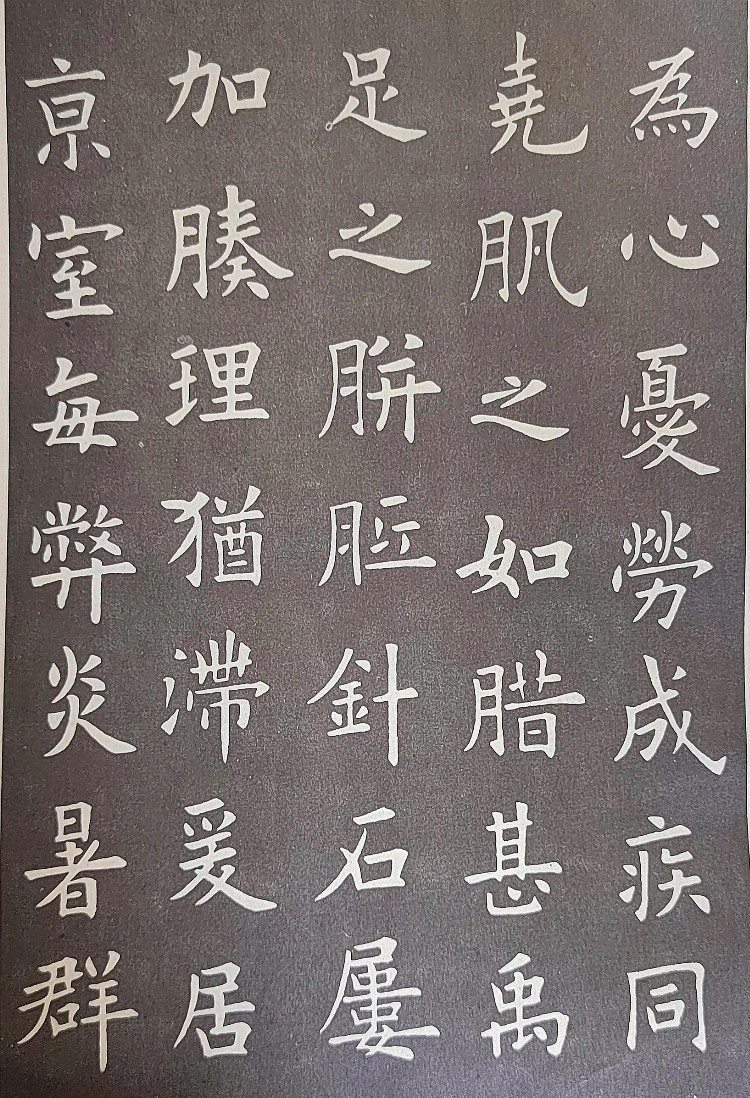 為心憂勞成疾同
堯肌之如腊甚禹
足之胼胝針石屢
加腠理猶滯爰居
京室每弊炎暑群